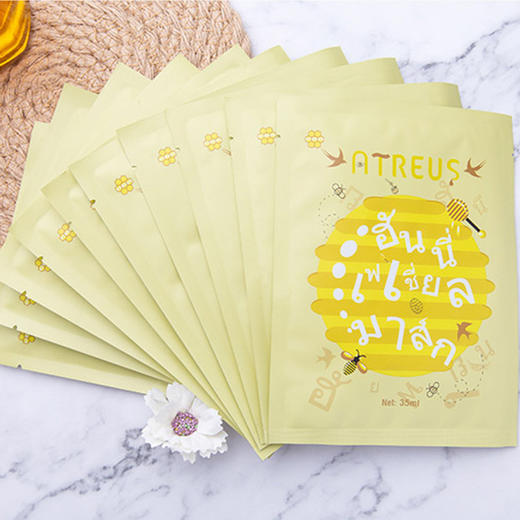 ATREUS
ฮันนี่
เฟเชี่ยล
มาส์ก
Net: 35ml